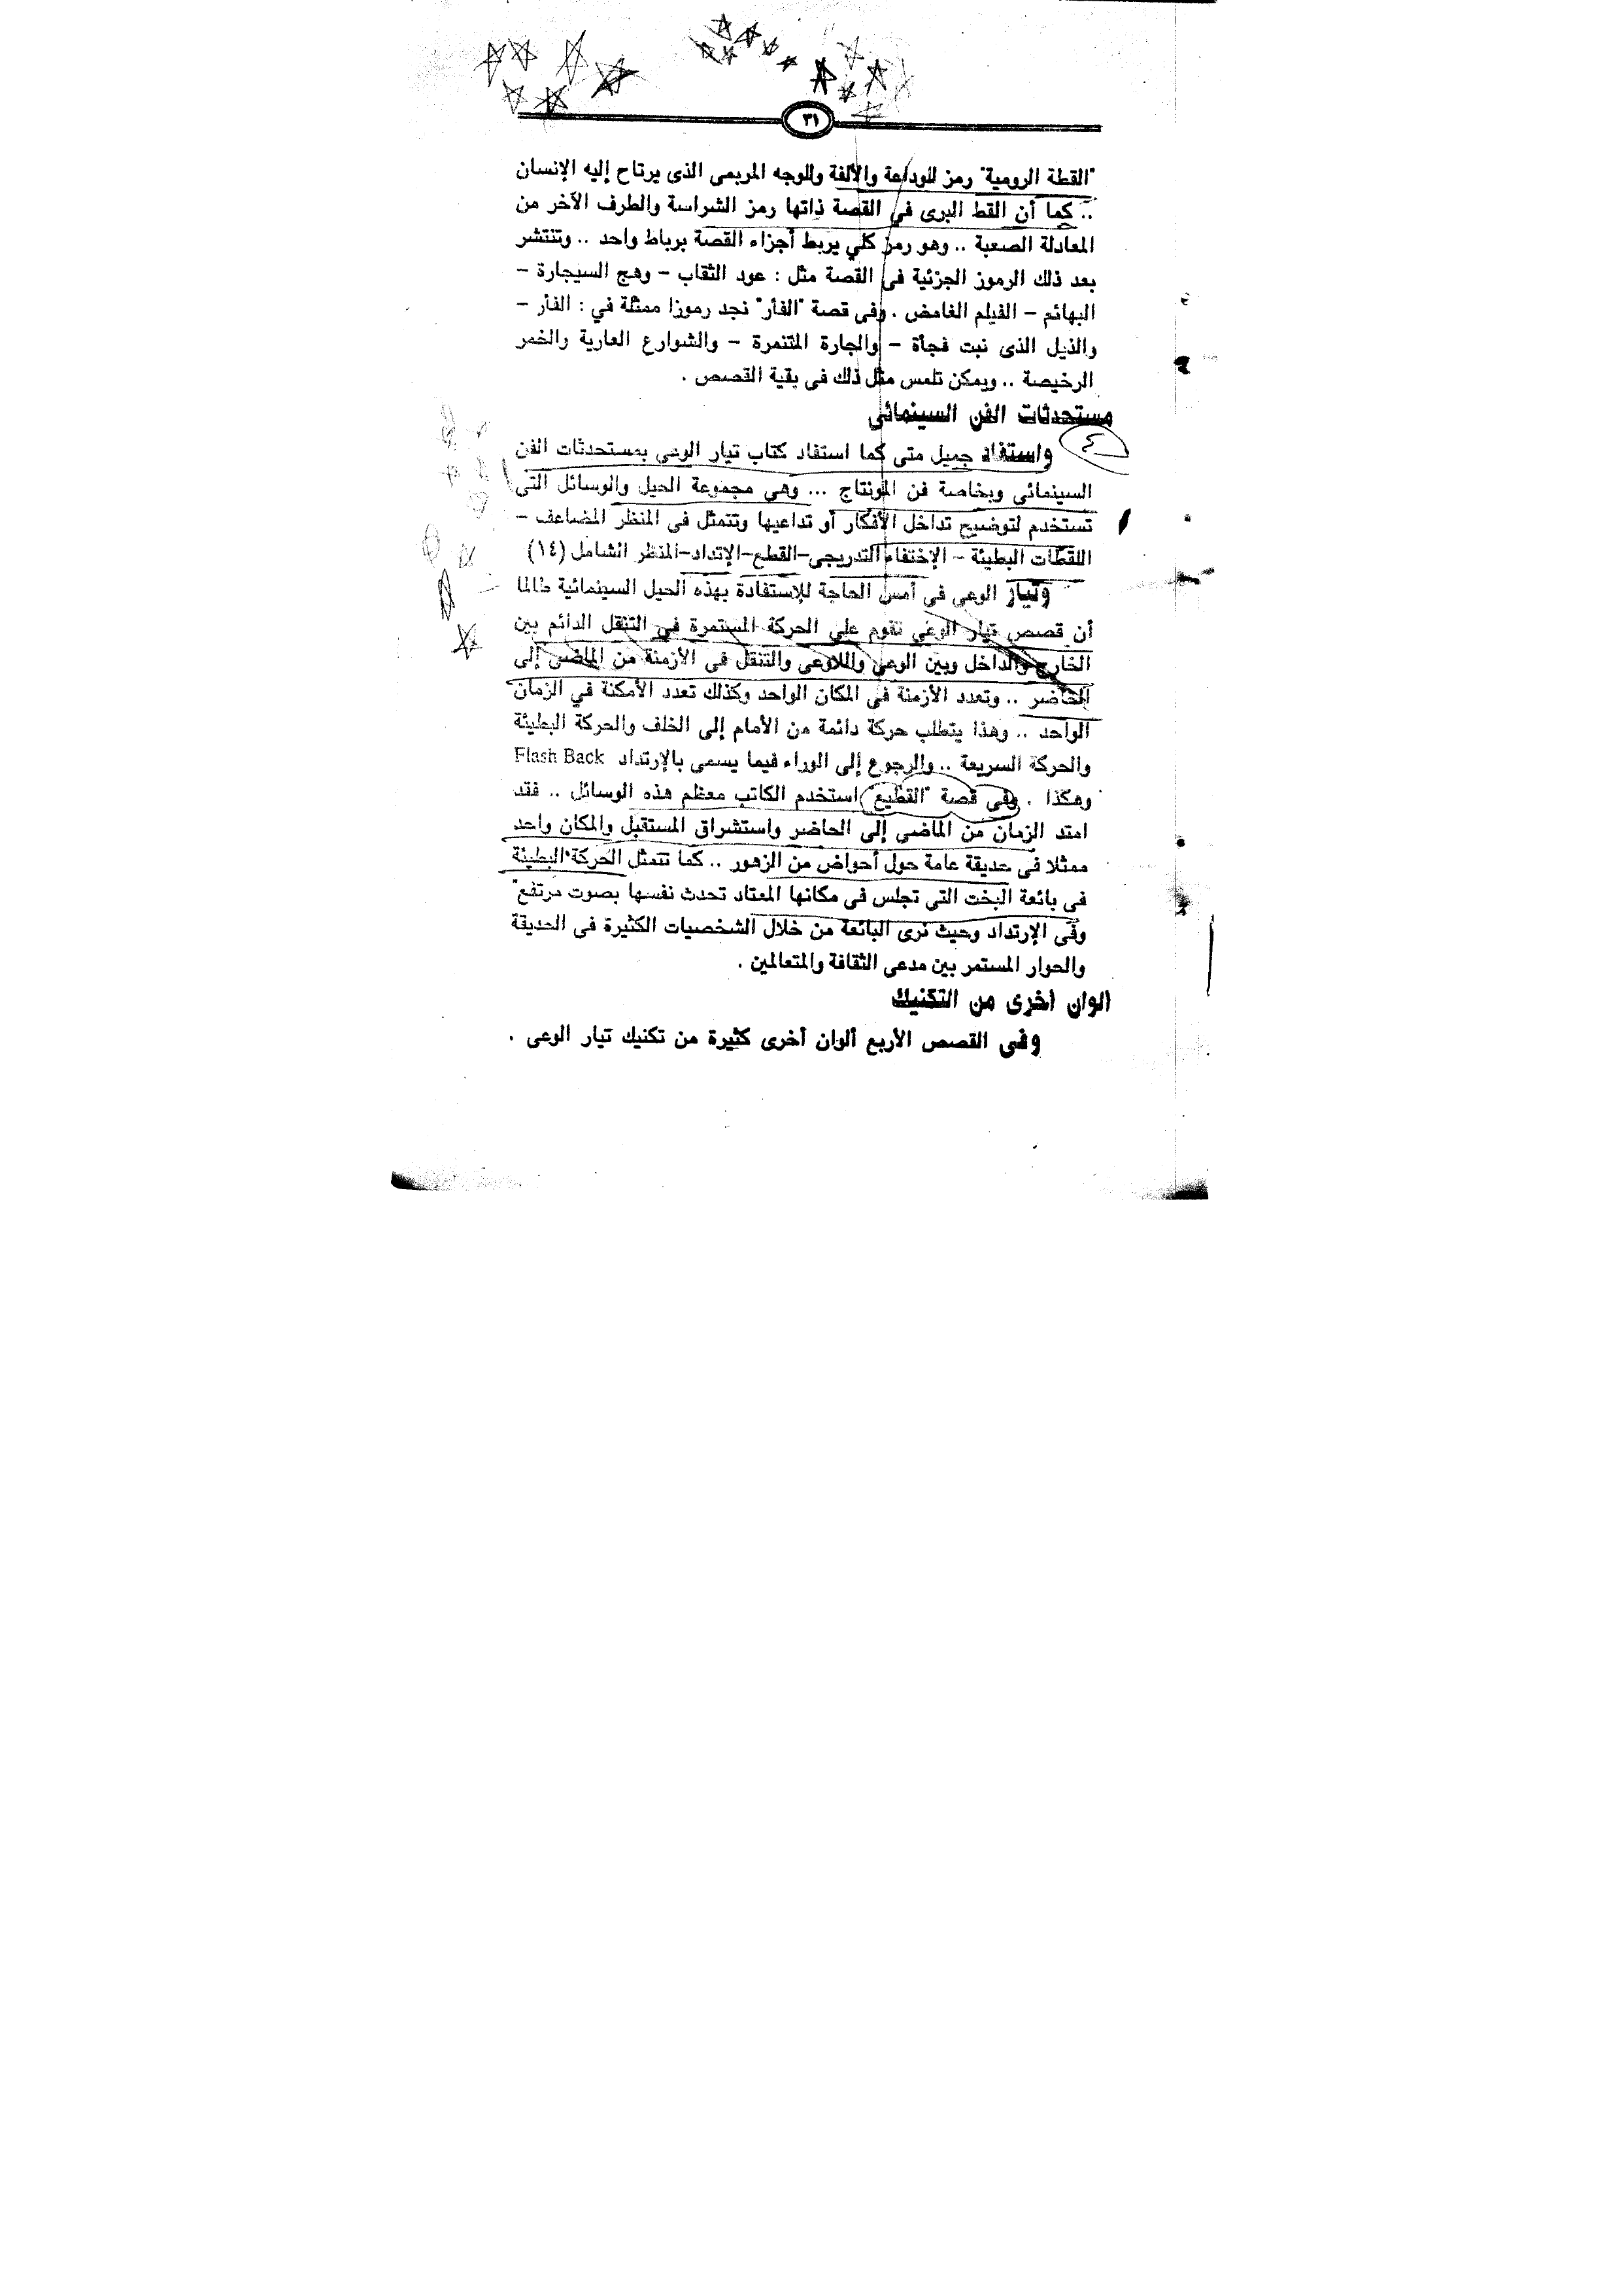 ٣١
"القطة الرومية" رمز للوداعة والألفة وللوجه المريمى الذى يرتاح إليه الإنسان
.. كما أن القط البرى في القصة ذاتها رمز الشراسة والطرف الآخر من
المعادلة الصعبة .. وهو رمز كلي يربط أجزاء القصة برباط واحد .. وتنتشر
بعد ذلك الرموز الجزئية فى القصة مثل : عود الثقاب – وهج السيجارة –
البهائم – الفيلم الغامض . وفى قصة "الفأر" نجد رموزا ممثلة في : الفأر –
والذيل الذى نبت فجأة – والجارة المتنمرة – والشوارع العارية والخمر
الرخيصة .. ويمكن تلمس مثل ذلك فى بقية القصص .
مستحدثات الفن السينمائى
٤
واستفاد جميل متى كما استفاد كتاب تيار الوعى بمستحدثات الفن
السينمائى وبخاصة فن المونتاج ... وهي مجموعة الحيل والوسائل التى
تستخدم لتوضيح تداخل الأفكار أو تداعيها وتتمثل فى المنظر المضاعف –
اللقطات البطيئة – الإختفاء التدريجى–القطع–الإتداد–المنظر الشامل (١٤)
وتيار الوعى فى أمس الحاجة للإستفادة بهذه الحيل السينمائية طالما
أن قصص تيار الوعي تقوم على الحركة المستمرة في التنقل الدائم بين
الخارج والداخل وبين الوعى واللاوعى والتنقل فى الأزمنة من الماضى إلى
الحاضر .. وتعدد الأزمنة فى المكان الواحد وكذلك تعدد الأمكنة في الزمان
الواحد .. وهذا يتطلب حركة دائمة من الأمام إلى الخلف والحركة البطيئة
والحركة السريعة .. والرجوع إلى الوراء فيما يسمى بالإرتداد Flash Back
وهكذا . وفى قصة "القطيع" استخدم الكاتب معظم هذه الوسائل .. فقد
امتد الزمان من الماضى إلى الحاضر واستشراق المستقبل والمكان واحد
ممثلا فى حديقة عامة حول أحواض من الزهور .. كما تتمثل الحركة البطيئة
فى بائعة البخت التي تجلس فى مكانها المعتاد تحدث نفسها بصوت مرتفع"
وفى الإرتداد وحيث نرى البائعة من خلال الشخصيات الكثيرة فى الحديقة
والحوار المستمر بين مدعى الثقافة والمتعالمين .
ألوان أخرى من التكنيك
وفى القصص الأربع ألوان أخرى كثيرة من تكنيك تيار الوعى .